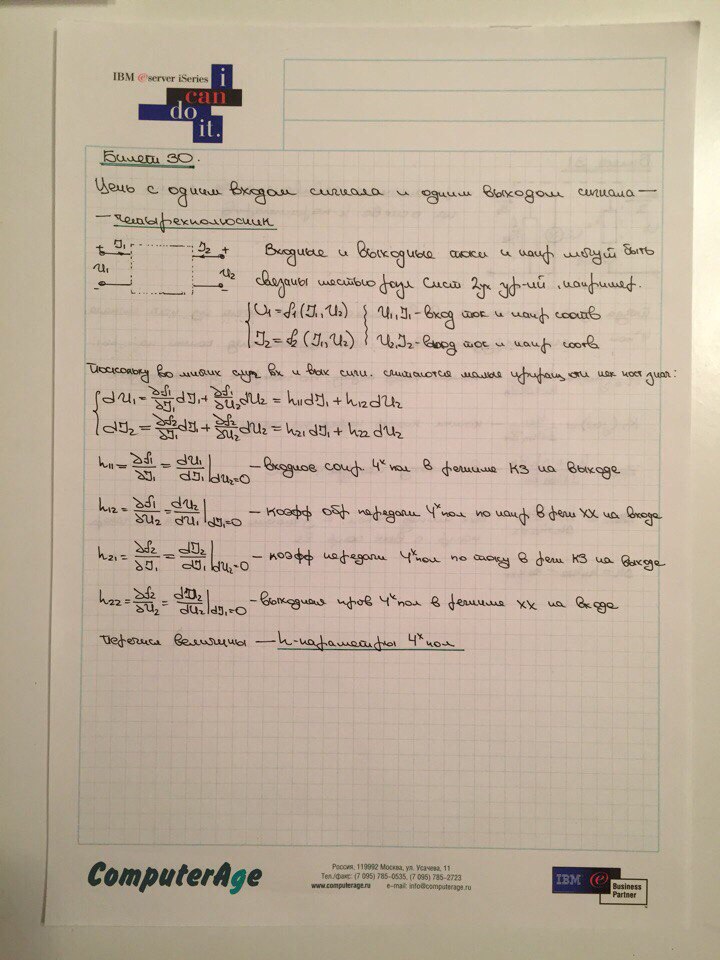 IBM @server iSeries
i
can
do
it.
Билет 30.
Цепь с одним входом сигнала и одним выходом сигнала —
— четырехполюсник
+ I₁ I₂ +
U₁ U₂
Входные и выходные токи и напр могут быть
связаны шестью разл сист 2ух ур-ий, например.
{ U₁ = f₁(I₁, U₂) } U₁, I₁ - вход ток и напр соотв
{ I₂ = f₂(I₁, U₂) } U₂, I₂ - выход ток и напр соотв
Поскольку во многих случ вх и вых сигн. считаются малые приращ отн нек пост знач:
{ dU₁ = ∂f₁/∂I₁ dI₁ + ∂f₁/∂U₂ dU₂ = h₁₁dI₁ + h₁₂dU₂
{ dI₂ = ∂f₂/∂I₁ dI₁ + ∂f₂/∂U₂ dU₂ = h₂₁dI₁ + h₂₂dU₂
h₁₁ = ∂f₁/∂I₁ = dU₁/dI₁ |dU₂=0 — входное сопр 4ˣ пол в режиме КЗ на выходе
h₁₂ = ∂f₁/∂U₂ = dU₂/dU₁ |dI₁=0 — коэфф обр передачи 4ˣ пол по напр в реж ХХ на входе
h₂₁ = ∂f₂/∂I₁ = dI₂/dI₁ |dU₂=0 — коэфф передачи 4ˣ пол по току в реж КЗ на выходе
h₂₂ = ∂f₂/∂U₂ = dI₂/dU₂ |dI₁=0 — выходная пров 4ˣ пол в режиме ХХ на входе
перечисл величины — h-параметры 4ˣ пол
ComputerAge
Россия, 119992 Москва, ул. Усачева, 11
Тел./факс: (7 095) 785-0535, (7 095) 785-2723
www.computerage.ru e-mail: info@computerage.ru
IBM @ Business
Partner